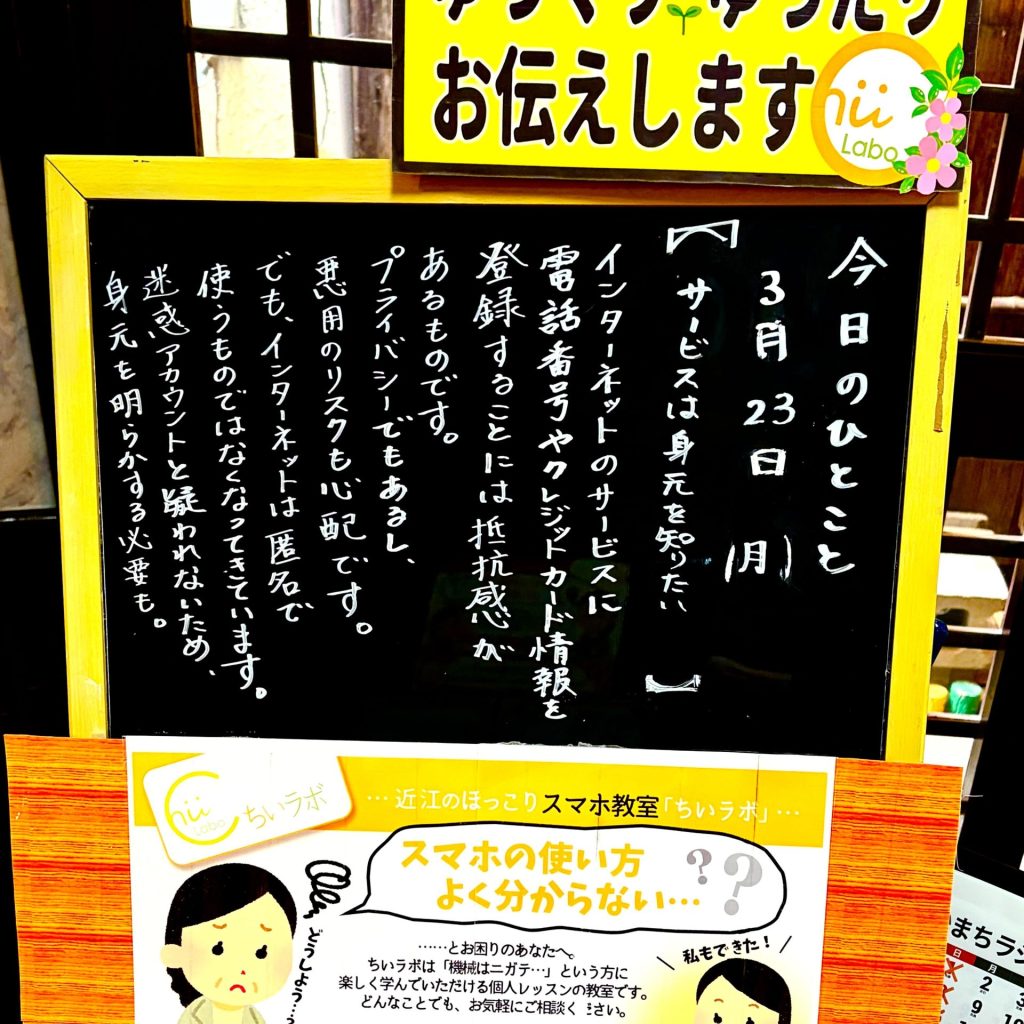 ゆっくり ゆったり
お伝えします
Chii
Labo
今日のひとこと
3月23日(月)
【サービスは身元を知りたい】
インターネットのサービスに
電話番号やクレジットカード情報を
登録することには抵抗感が
あるものです。
プライバシーでもあるし、
悪用のリスクも心配です。
でも、インターネットは匿名で
使うものではなくなってきています。
迷惑アカウントと疑われないため、
身元を明らかする必要も。
Chii
Labo
ちいラボ
…近江のほっこりスマホ教室「ちいラボ」…
スマホの使い方
よく分からない…
??
どうしよう…
……とお困りのあなたへ。
ちいラボは「機械はニガテ…」という方に
楽しく学んでいただける個人レッスンの教室です。
どんなことでも、お気軽にご相談ください。
私もできた!
まちラン
日 月
2 3
9 10